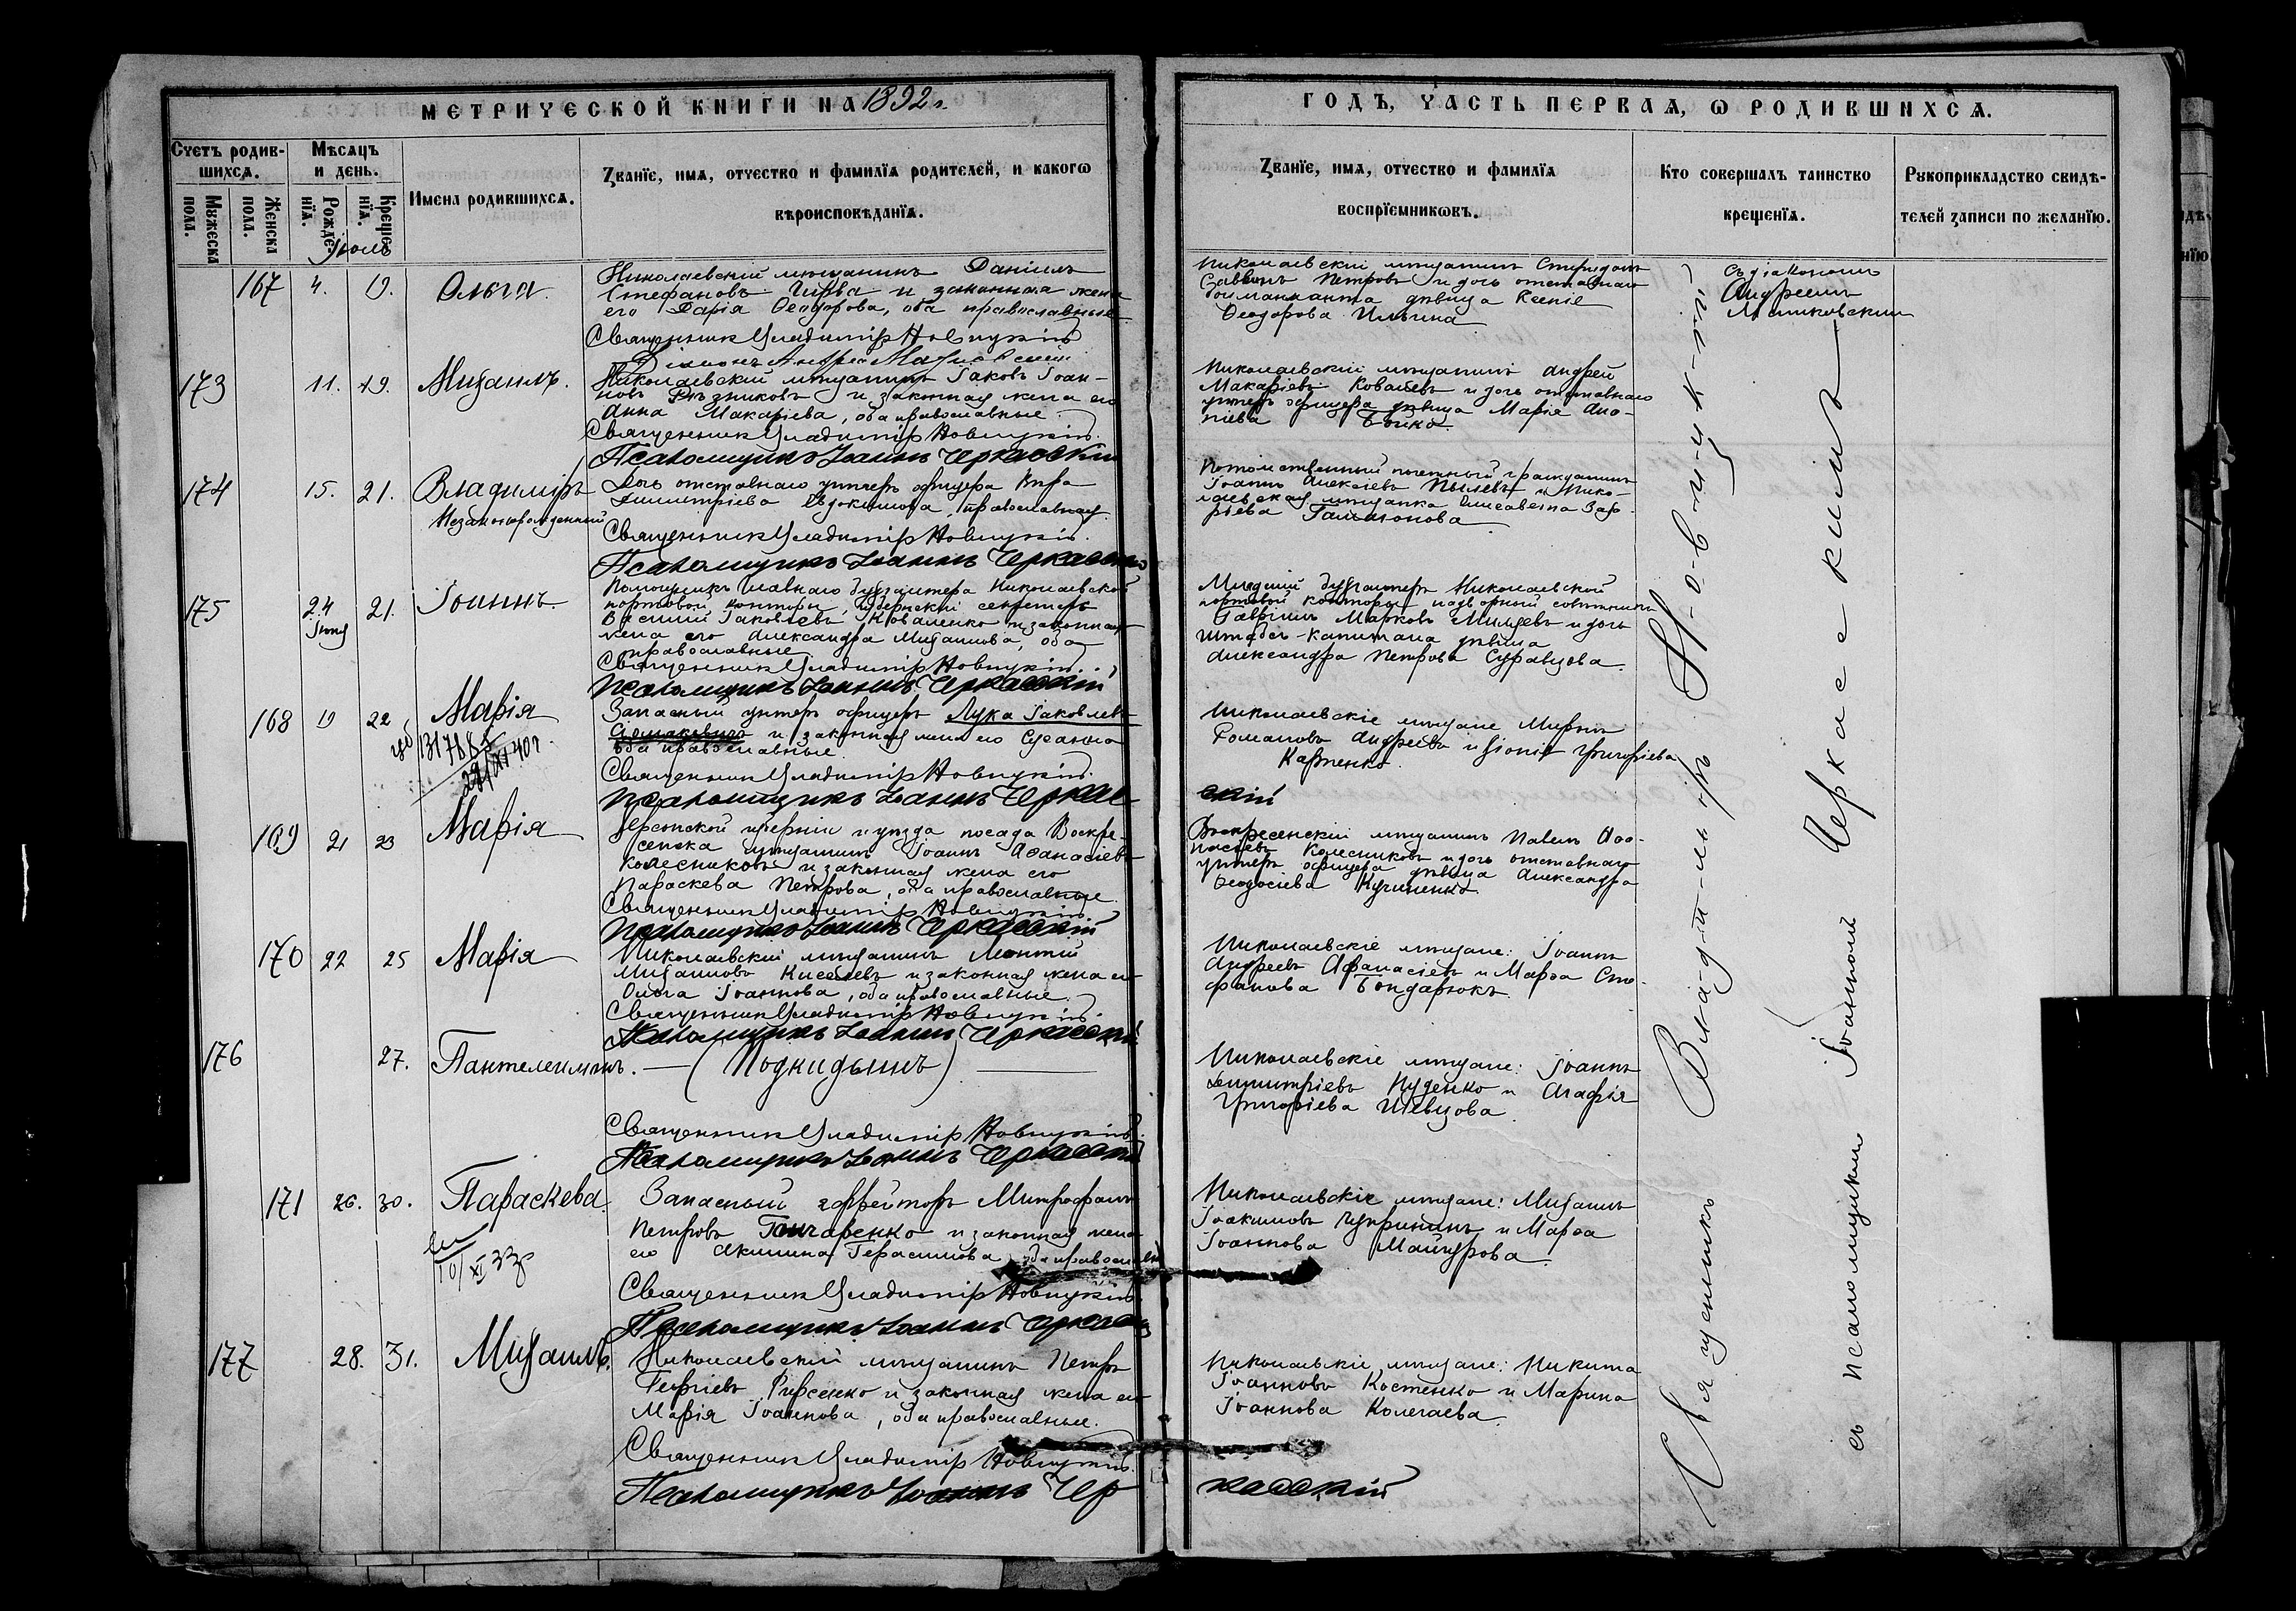 МЕТРИЧЕСКОЙ КНИГИ НА 1892 г.
Счетъ родив-
шихся.
Мѣсяцъ
и день.
Имена родившихся.
Званіе, имя, отчество и фамилія родителей, и какогѡ
вѣроисповѣданія.
Мужеска
пола.
Женска
пола.
Рожде-
нія.
Креще-
нія.
Іюль
167 4. 19. Ольга.
Николаевскій мѣщанинъ Даніилъ
Стефановъ и законная жена
его Дарія Ѳеодорова, оба православные
Священникъ Владиміръ Новицкій
Діаконъ Андрей
173 11. 19. Михаилъ.
Николаевскій мѣщанинъ Іаковъ Іоан-
новъ Рѣзниковъ и законная жена его
Анна Макаріева, оба православные.
Священникъ Владиміръ Новицкій.
Псаломщикъ Іоаннъ Черкасскій
174 15. 21. Владиміръ
Незаконнорожденный
Дочь отставнаго унтеръ офицера Вѣра
Димитріева Евдокимова, православная.
Священникъ Владиміръ Новицкій.
Псаломщикъ Іоаннъ Черкасскій
175 24 21. Іоаннъ.
Іюня
Помощникъ главнаго бухгалтера Николаевской
портовой конторы, губернскій секретарь
Василій Іаковлевъ Коваленко и законная
жена его Александра Михаилова, оба
православные
Священникъ Владиміръ Новицкій.
Псаломщикъ Іоаннъ Черкасскій
168 19 22 Марія
Запасный унтеръ офицеръ Лука Іаковлев
и законная жена его
оба православные
Священникъ Владиміръ Новицкій.
Псаломщикъ Іоаннъ Черкас-
169 21 23 Марія
Херсонской губерніи и уѣзда посада Воскре-
сенска мѣщанинъ Іоаннъ Аѳанасіевъ
Колесниковъ и законная жена его
Параскева Петрова, оба православные.
Священникъ Владиміръ Новицкій.
Псаломщикъ Іоаннъ Черкасскій
170 22 25 Марія
Николаевскій мѣщанинъ Леонтій
Михаиловъ Киселевъ и законная жена его
Ольга Іоаннова, оба православные.
Священникъ Владиміръ Новицкій.
Псаломщикъ Іоаннъ Черкасскій
176 27. Пантелеимонъ. — (Подкидышъ)
Священникъ Владиміръ Новицкій.
Псаломщикъ Іоаннъ Черкасскій
171 26. 30. Параскева.
Запасный ефрейторъ Митрофанъ
Петровъ Гончаренко и законная жена
его Акилина Герасимова, оба православн
Священникъ Владиміръ Новицкій.
Псаломщикъ Іоаннъ Черкасскій
177 28. 31. Михаилъ.
Николаевскій мѣщанинъ Петръ
Георгіевъ и законная жена его
Марія Іоаннова, оба православные.
Священникъ Владиміръ Новицкій.
Псаломщикъ Іоаннъ Чер
ГОДЪ, ЧАСТЬ ПЕРВАЯ, Ѡ РОДИВШИХСЯ.
Званіе, имя, отчество и фамилія
воспріемникѡвъ.
Кто совершалъ таинство
крещенія.
Рукоприкладство свидѣ-
телей записи по желанію.
Николаевскій мѣщанинъ Спиридонъ
Саввинъ Петровъ и дочь отставнаго
дѣвица Ксенія
Ѳеодорова Ильина
Николаевскій мѣщанинъ Андрей
Макаріевъ Ковалевъ и дочь отставнаго
унтеръ офицера дѣвица Марія
Бойко.
Потомственный почетный гражданинъ
Іоаннъ Алексіевъ и Нико-
лаевская мѣщанка Елисавета
Младшій бухгалтеръ Николаевской
портовой конторы надворный совѣтникъ
Гавріилъ Марковъ и дочь
штабсъ-капитана дѣвица
Александра Петрова Суравцова.
Николаевскіе мѣщане Миронъ
Романовъ Андреевъ и Григоріева
Карпенко.
скій
Воскресенскій мѣщанинъ Павелъ Аѳа-
насіевъ Колесниковъ и дочь отставнаго
унтеръ офицера дѣвица Александра
Ѳеодосіева
Николаевскіе мѣщане: Іоаннъ
Андреевъ Афанасіевъ и Марѳа Сте-
фанова Бондарюкъ.
Николаевскіе мѣщане: Іоаннъ
Димитріевъ и Агафія
Григоріева Шевцова.
Николаевскіе мѣщане: Михаилъ
Іоакимовъ Чупринъ и Марѳа
Іоаннова
Николаевскіе мѣщане: Никита
Іоанновъ Костенко и Марина
Іоаннова Колегаева.
касскій
съ діакономъ
Андреемъ
Священникъ Владиміръ Новицкій
съ псаломщикомъ Іоанномъ Черкасскимъ